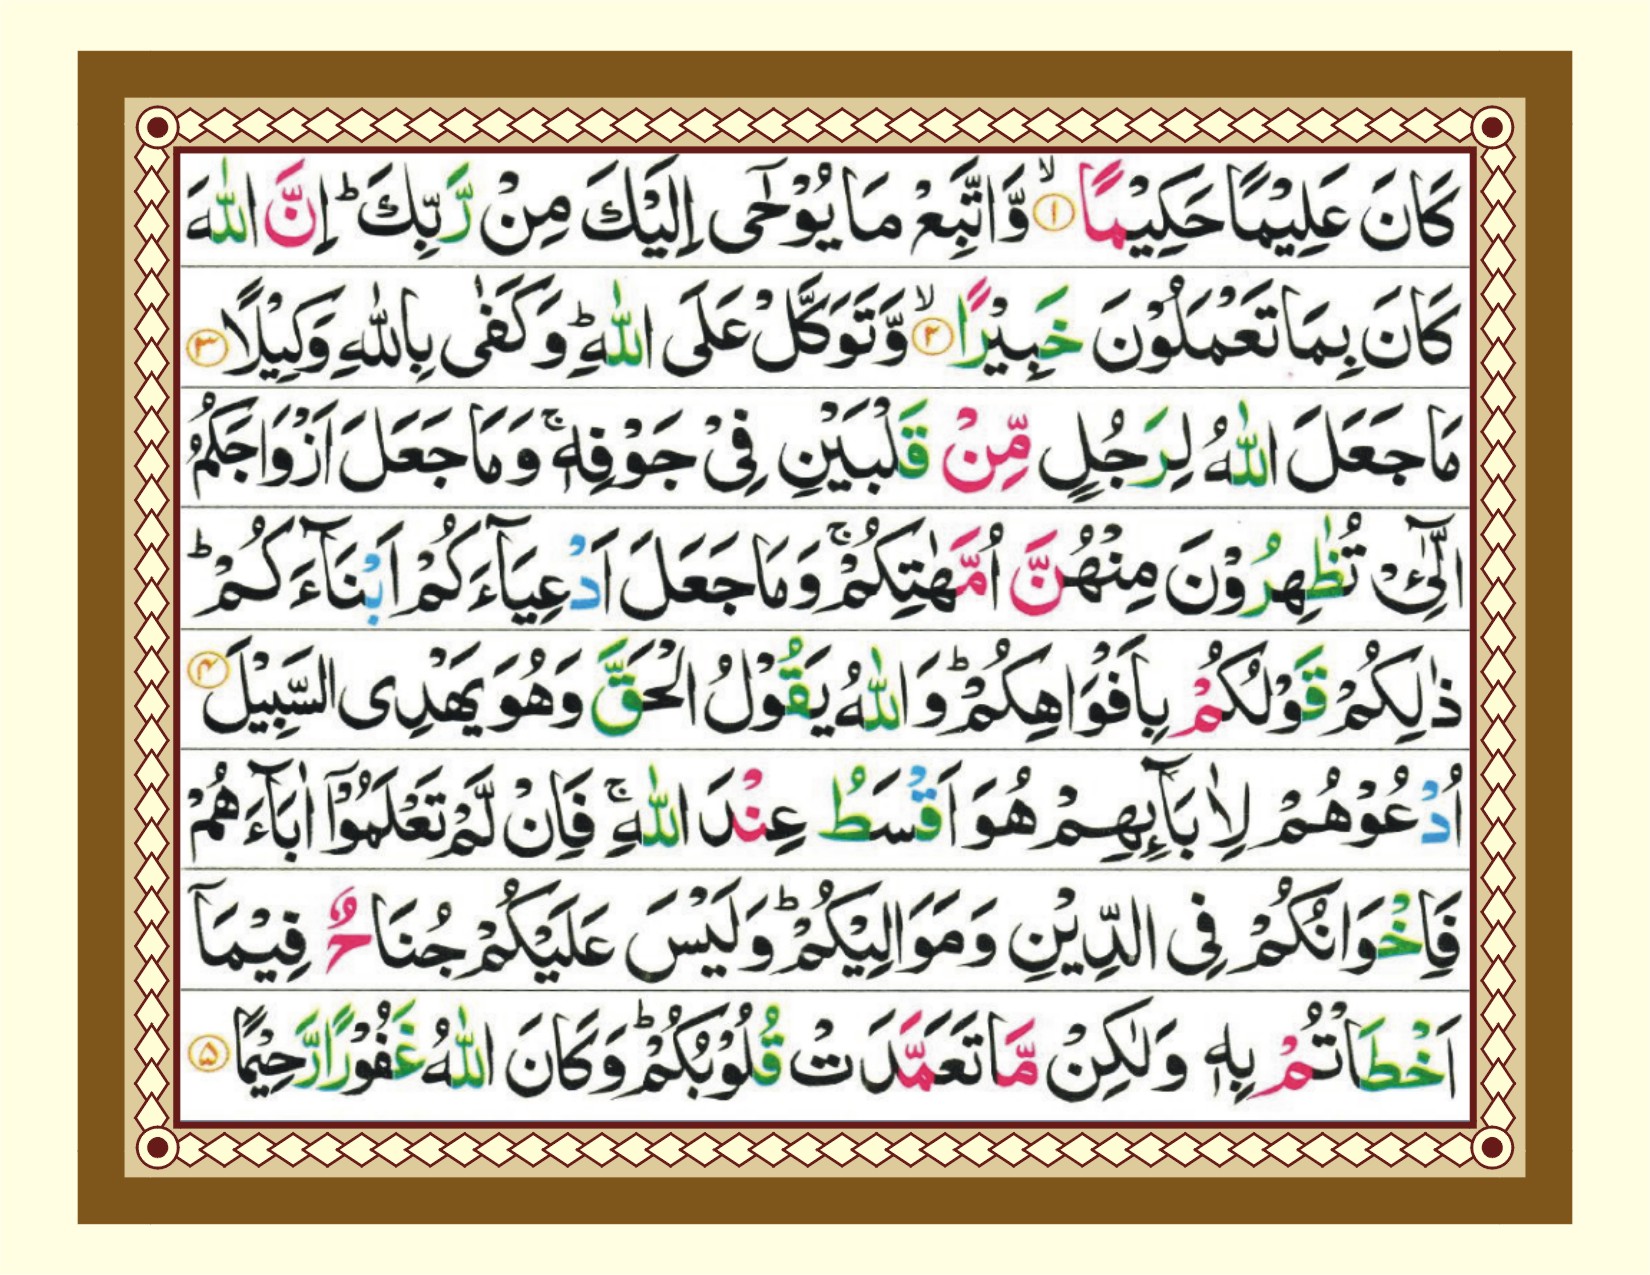 كَانَ عَلِيْمًا حَكِيْمًا ۙ‏﴿۱﴾ وَّاتَّبِعْ مَا يُوْحٰۤى اِلَيْكَ مِنْ رَّبِّكَ ؕ اِنَّ اللّٰهَ
كَانَ بِمَا تَعْمَلُوْنَ خَبِيْرًا ۙ‏﴿۲﴾ وَّتَوَكَّلْ عَلَى اللّٰهِ ؕ وَكَفٰى بِاللّٰهِ وَكِيْلًا ﴿۳﴾
مَا جَعَلَ اللّٰهُ لِرَجُلٍ مِّنْ قَلْبَيْنِ فِىْ جَوْفِهٖ ۚ وَمَا جَعَلَ اَزْوَاجَكُمُ
الّٰٓـِٔىْ تُظٰهِرُوْنَ مِنْهُنَّ اُمَّهٰتِكُمْ ۚ وَمَا جَعَلَ اَدْعِيَآءَكُمْ اَبْنَآءَكُمْ ؕ
ذٰلِكُمْ قَوْلُكُمْ بِاَفْوَاهِكُمْ ؕ وَاللّٰهُ يَقُوْلُ الْحَقَّ وَهُوَ يَهْدِى السَّبِيْلَ ﴿۴﴾
اُدْعُوْهُمْ لِاٰبَآئِهِمْ هُوَ اَقْسَطُ عِنْدَ اللّٰهِ ۚ فَاِنْ لَّمْ تَعْلَمُوْۤا اٰبَآءَهُمْ
فَاِخْوَانُكُمْ فِى الدِّيْنِ وَمَوَالِيْكُمْ ؕ وَلَيْسَ عَلَيْكُمْ جُنَاحٌ فِيْمَاۤ
اَخْطَاْتُمْ بِهٖ وَلٰكِنْ مَّا تَعَمَّدَتْ قُلُوْبُكُمْ ؕ وَكَانَ اللّٰهُ غَفُوْرًا رَّحِيْمًا ﴿۵﴾